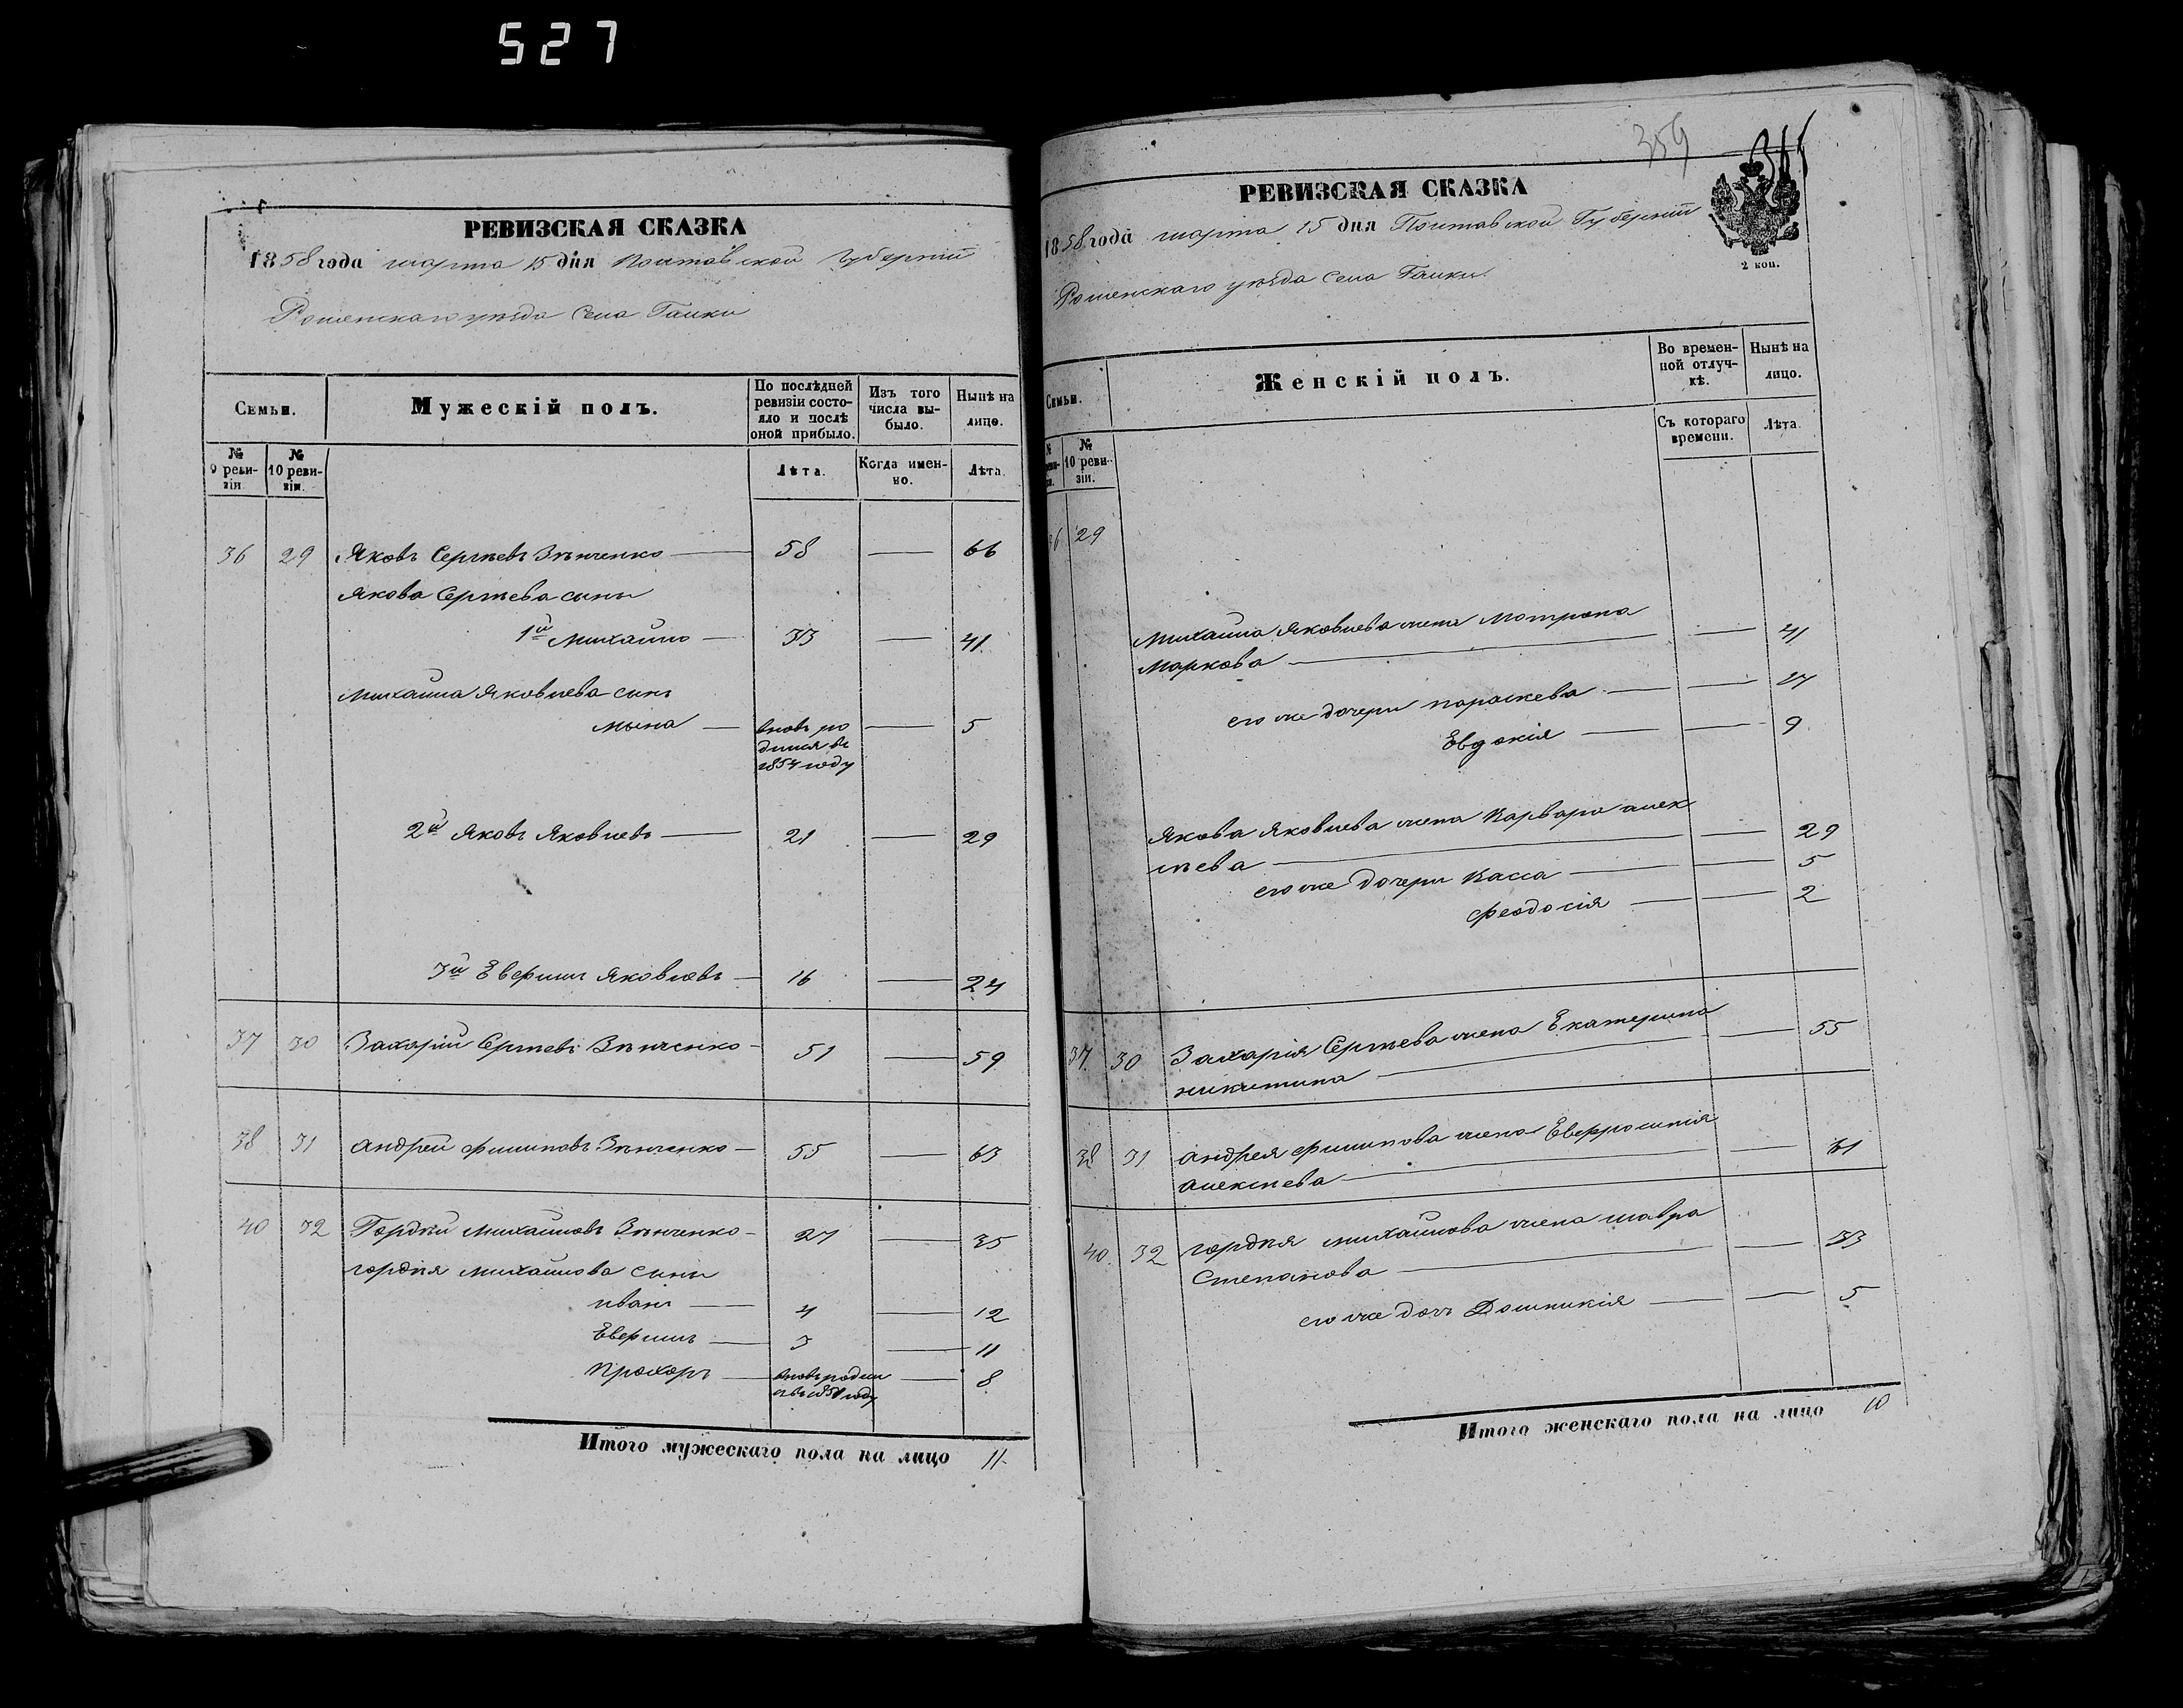 527
РЕВИЗСКАЯ СКАЗКА
1858 года марта 15 дня Полтавской Губерніи
Роменскаго уѣзда Села Галки
Семьи.
Мужескій полъ.
По послѣдней ревизіи состо-
яло и послѣ
оной прибыло.
Изъ того
числа вы-
было.
Нынѣ на
лицо.
№
9 реви-
зіи.
№
10 реви-
зіи.
Лѣта.
Когда имен-
но.
Лѣта.
36 29 Яковъ Сергѣевъ Зѣнченко — 58 — 66
Якова Сергѣева сыны
1й Михайло — 33 — 41
Михаила Яковлева сынъ
Мина — вновь ро — 5
дился въ
1854 году
2й Яковъ Яковлевъ — 21 — 29
3й Евфимъ Яковлевъ — 16 — 24
37 30 Захарій Сергѣевъ Зѣнченко — 51 — 59
38 31 Андрей Филиповъ Зѣнченко — 55 — 63
40 32 Гордѣй Михайловъ Зѣнченко — 27 — 35
Гордѣя Михайлова сыны
Иванъ — 4 — 12
Евфимъ — 3 — 11
Прохоръ — вновь родил — 8
Итого мужескаго пола на лицо 11
359
РЕВИЗСКАЯ СКАЗКА
1858 года марта 15 дня Полтавской Губерніи
Роменскаго уѣзда Села Галки
2 коп.
Семьи.
Женскій полъ.
Во времен-
ной отлуч-
кѣ.
Нынѣ на
лицо.
№
10 реви-
зіи.
Съ котораго
времени.
Лѣта.
36 29
Михаила Яковлева жена Мотрона
Маркова — — 41
его же дочери Параскева — — 17
Евдокія — — 9
Якова Яковлева жена Варвара Алек
сѣева — — 29
его же дочери Васса — — 5
Феодосія — — 2
37 30 Захарія Сергѣева жена Екатерина
Никитина — — 55
38 31 Андрея Филипова жена Евфросинія
Алексѣева — — 61
40 32 Гордѣя Михайлова жена Мавра
Степанова — — 33
его же дочь Домникія — — 5
Итого женскаго пола на лицо 10